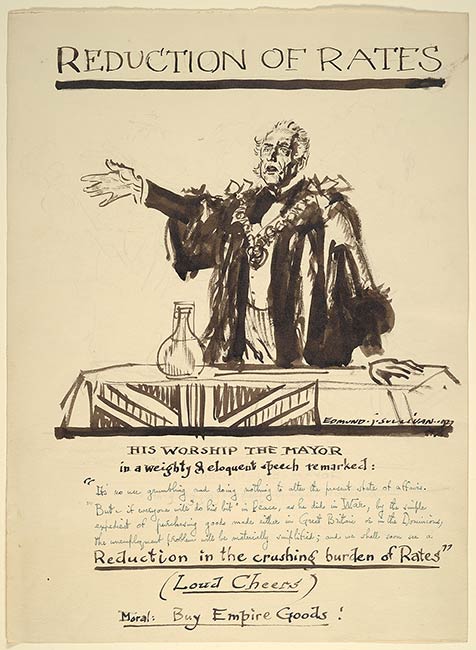 REDUCTION OF RATES
EDMUND·J·SULLIVAN
HIS WORSHIP THE MAYOR
in a weighty & eloquent speech remarked:
"It's no use grumbling and doing nothing to alter the present state of affairs.
"But if everyone will "do his bit" in Peace, as he did in War, by the simple
expedient of purchasing goods made either in Great Britain or in the Dominions,
the unemployment problem will be materially simplified; and we shall soon see a
Reduction in the crushing burden of Rates"
(Loud Cheers)
Moral: Buy Empire Goods!